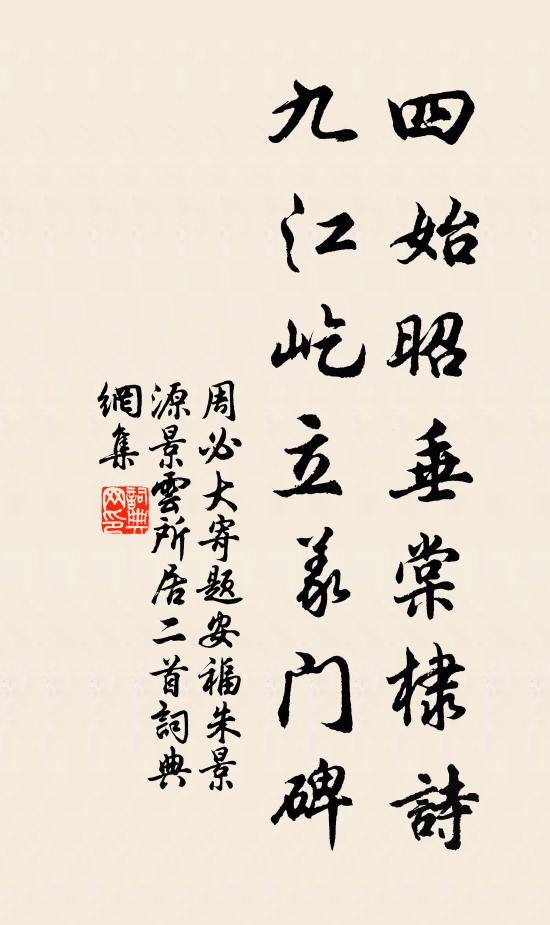 四始昭垂棠棣詩
九江屹立義門碑
周必大寄題安福朱景
源景雲所居二首詞典
網集
詞典
网印